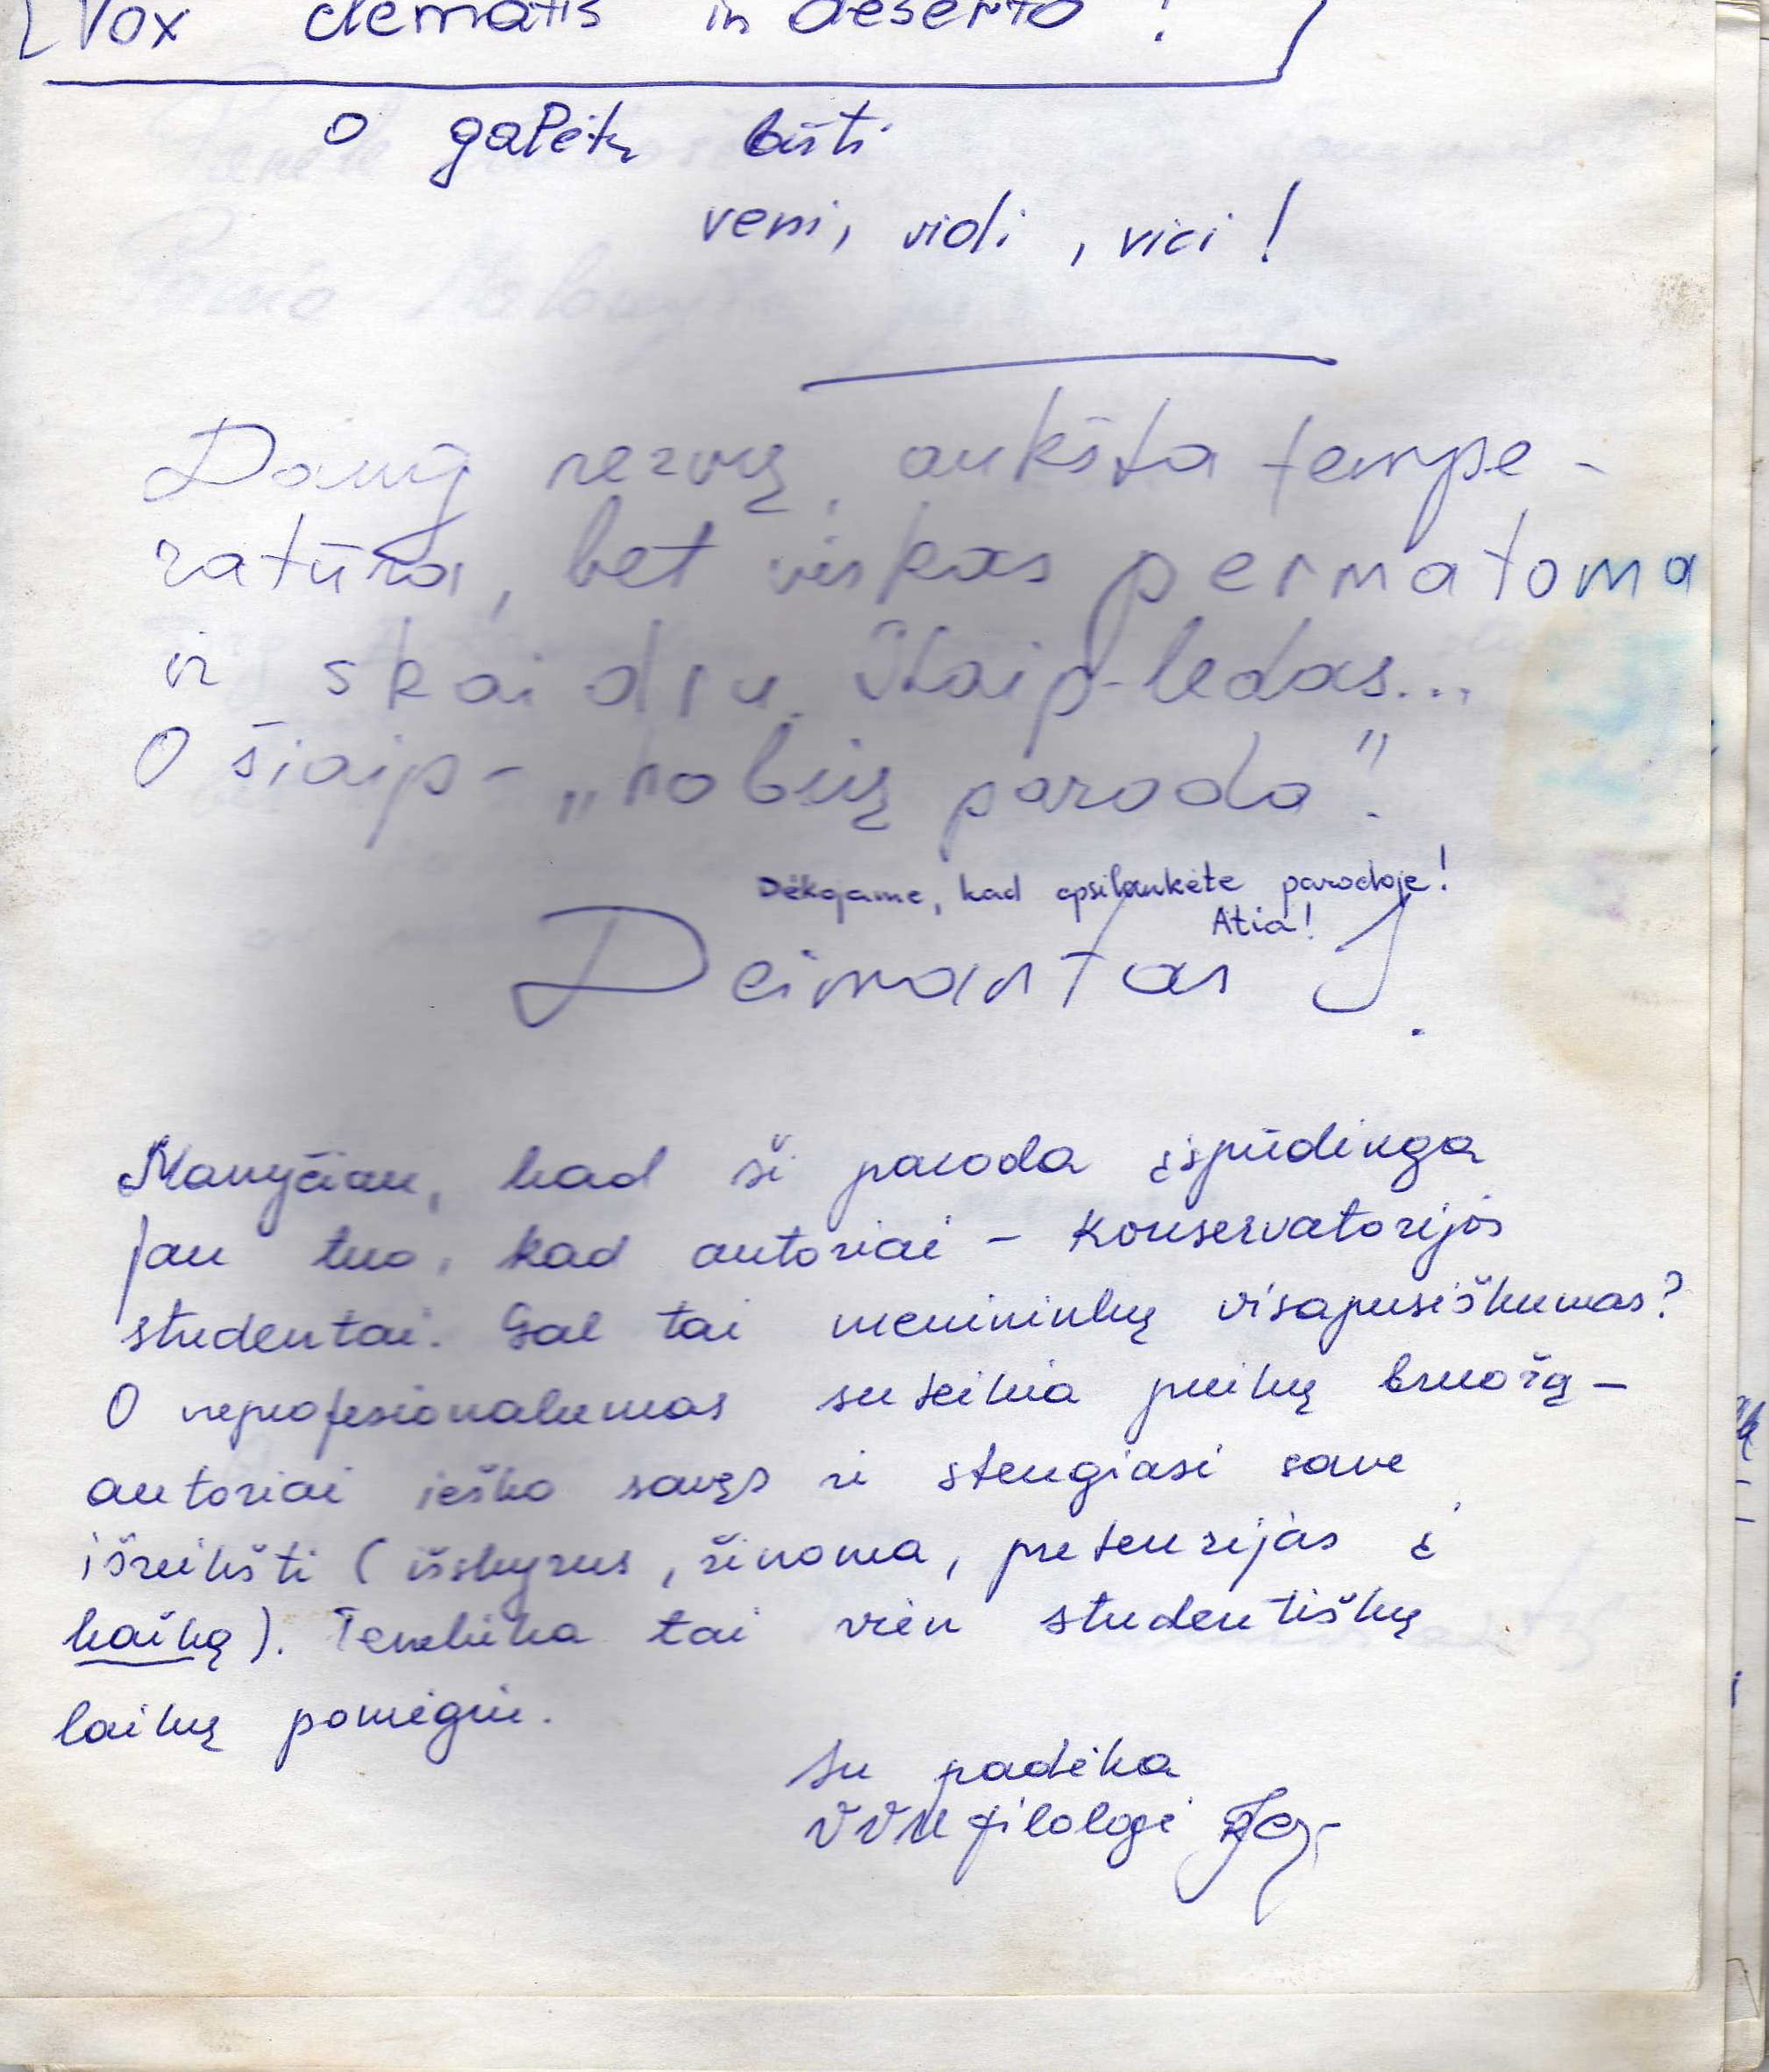 Vox clematis in deserto!
o galėtų būti
veni, vidi, vici!
Daug nervų, aukšta tempe-
ratūra, bet viskas permatoma
ir skaidru. Kaip ledas...
O šiaip - „hobių paroda".
Dėkojame, kad apsilankėte parodoje!
Atia!
Deimantas J.
Manyčiau, kad ši paroda įspūdinga
jau tuo, kad autoriai - konservatorijos
studentai. Gal tai menininkų visapusiškumas?
O neprofesionalumas suteikia puikų bruožą -
autoriai ieško savęs ir stengiasi save
išreikšti (išskyrus, žinoma, pretenzijas į
kažką). Tenelieka tai vien studentiškų
laikų pomėgiu.
Su padėka
VVU filologė